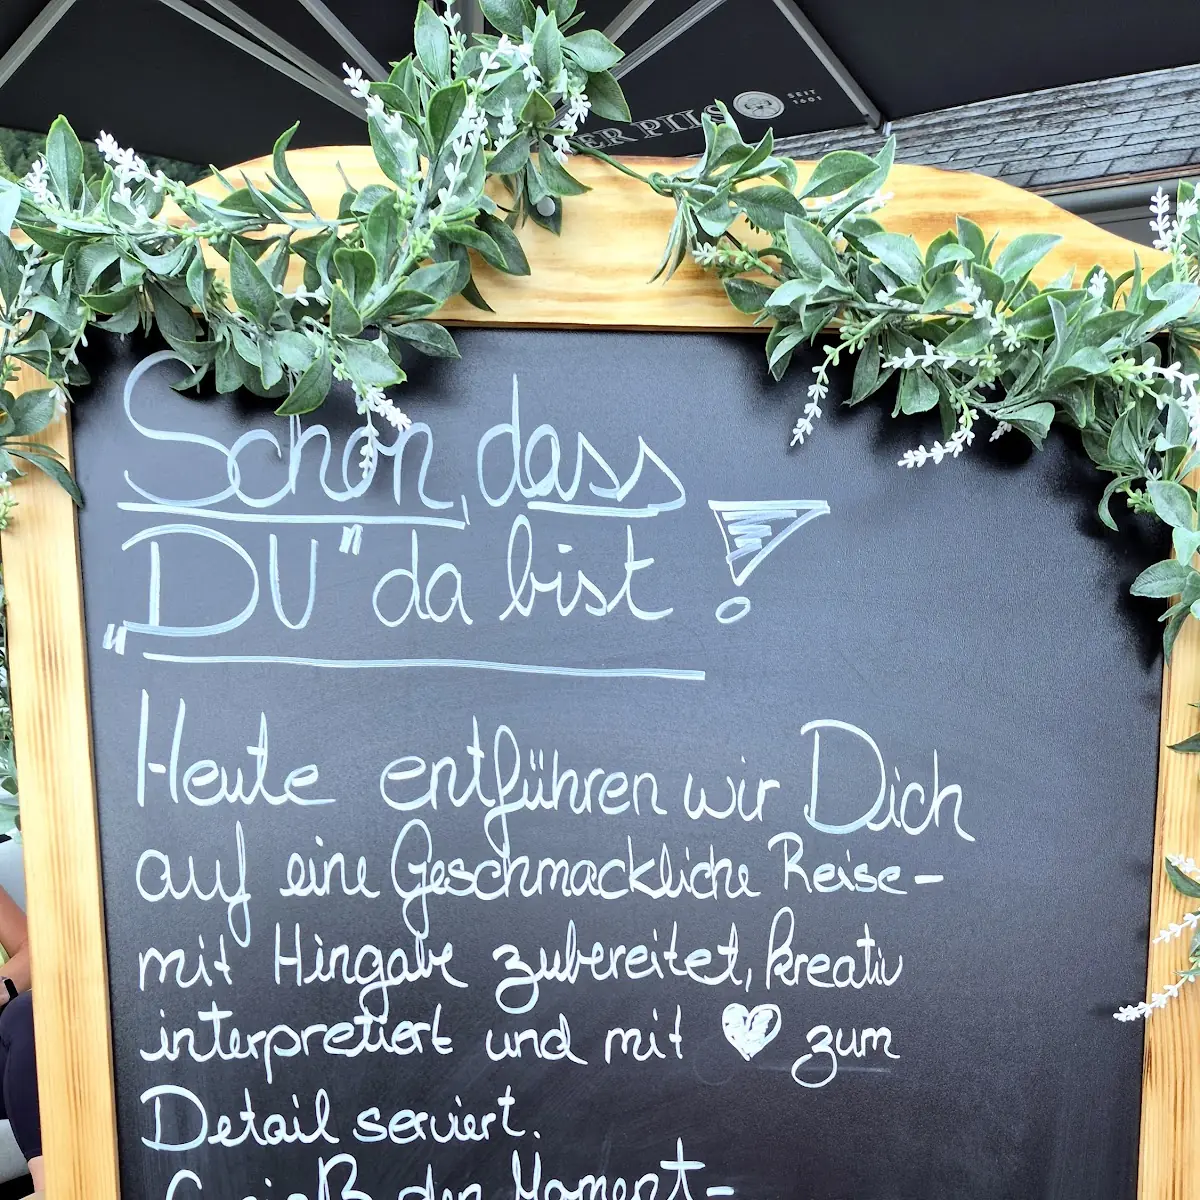 ER PILS
SEIT
1601
Schön, dass
„DU" da bist!
Heute entführen wir Dich
auf eine Geschmackliche Reise-
mit Hingabe zubereitet, kreativ
interpretiert und mit ♥ zum
Detail serviert.
Genieß den Moment-